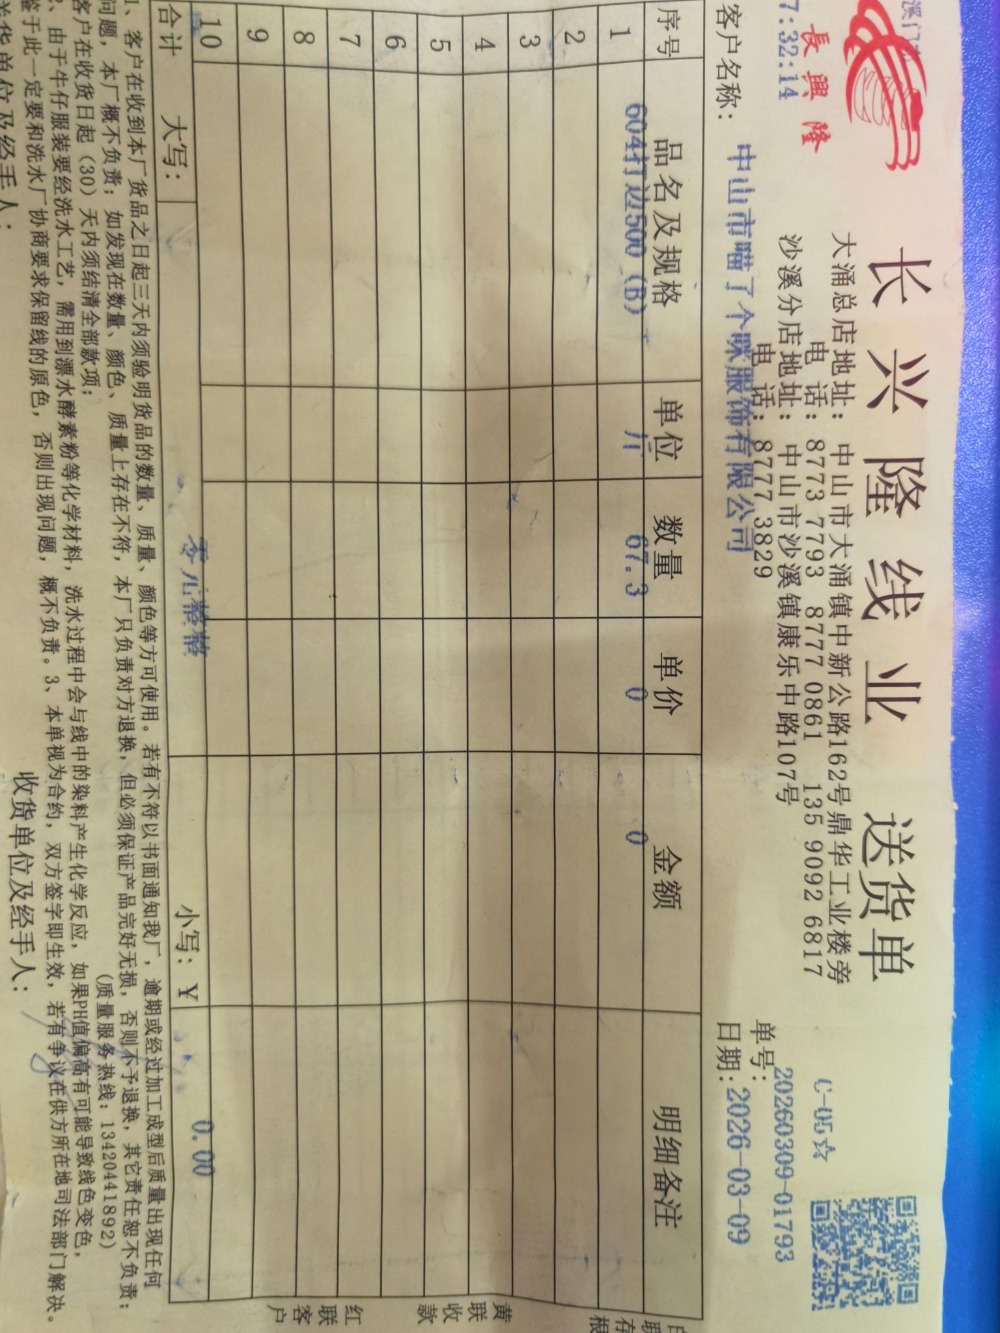 长兴隆线业 送货单
長興隆
C-05☆
7:32:14
大涌总店地址：中山市大涌镇中新公路162号鼎华工业楼旁
电话：8773 7793 8777 0861 135 9092 6817
沙溪分店地址：中山市沙溪镇康乐中路107号
电话：8777 3829
单号：20260309-01793
客户名称：中山市喵了个咪服饰有限公司
日期：2026-03-09
序号 品名及规格 单位 数量 单价 金额 明细备注
1 604打边500（B） 斤 67.3 0 0
2
3
4
5
6
7
8
9
10
合计 大写： 零元整整 小写：￥ 0.00
1、客户在收到本厂货品之日起三天内须验明货品的数量、质量、颜色等方可使用。若有不符以书面通知我厂，逾期或经过加工成型后质量出现任何
问题，本厂概不负责；如发现在数量、颜色、质量上存在不符，本厂只负责对方退换，但必须保证产品完好无损，否则不予退换，其它责任恕不负责；
客户在收货日起（30）天内须结清全部款项； （质量服务热线：13420441892）
2、由于牛仔服装要经洗水工艺，需用到漂水酵素粉等化学材料，洗水过程中会与线中的染料产生化学反应，如果PH值偏高有可能导致线色变色，
鉴于此一定要和洗水厂协商要求保留线的原色，否则出现问题，概不负责。3、本单视为合约，双方签字即生效，若有争议在供方所在地司法部门解决。
送货单位及经手人：
收货单位及经手人：
存根
黄联收款
红联客户